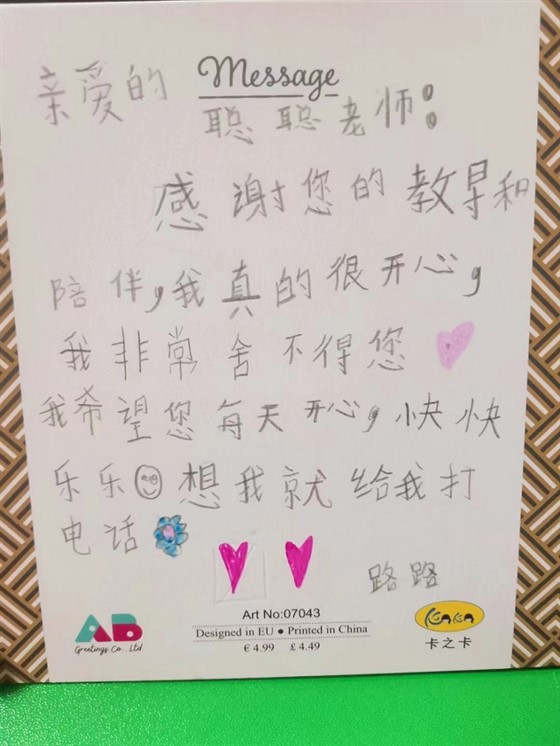 Message
亲爱的
聪聪老师:
感谢您的教导和
陪伴,我真的很开心,
我非常舍不得您
我希望您每天开心,快快
乐乐想我就给我打
电话
路路
AB
Greetings Co., Ltd
Art No:07043
Designed in EU ● Printed in China
€ 4.99 £ 4.49
KaKa
卡之卡